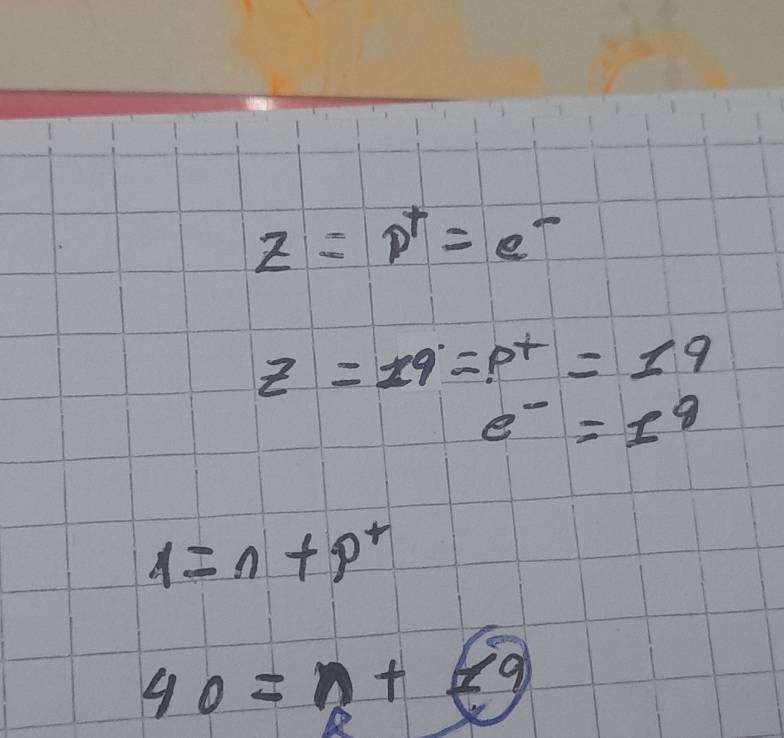 Z = p⁺ = e⁻
Z = 19 = p⁺ = 19
e⁻ = 19
A = n + p⁺
40 = n + 19